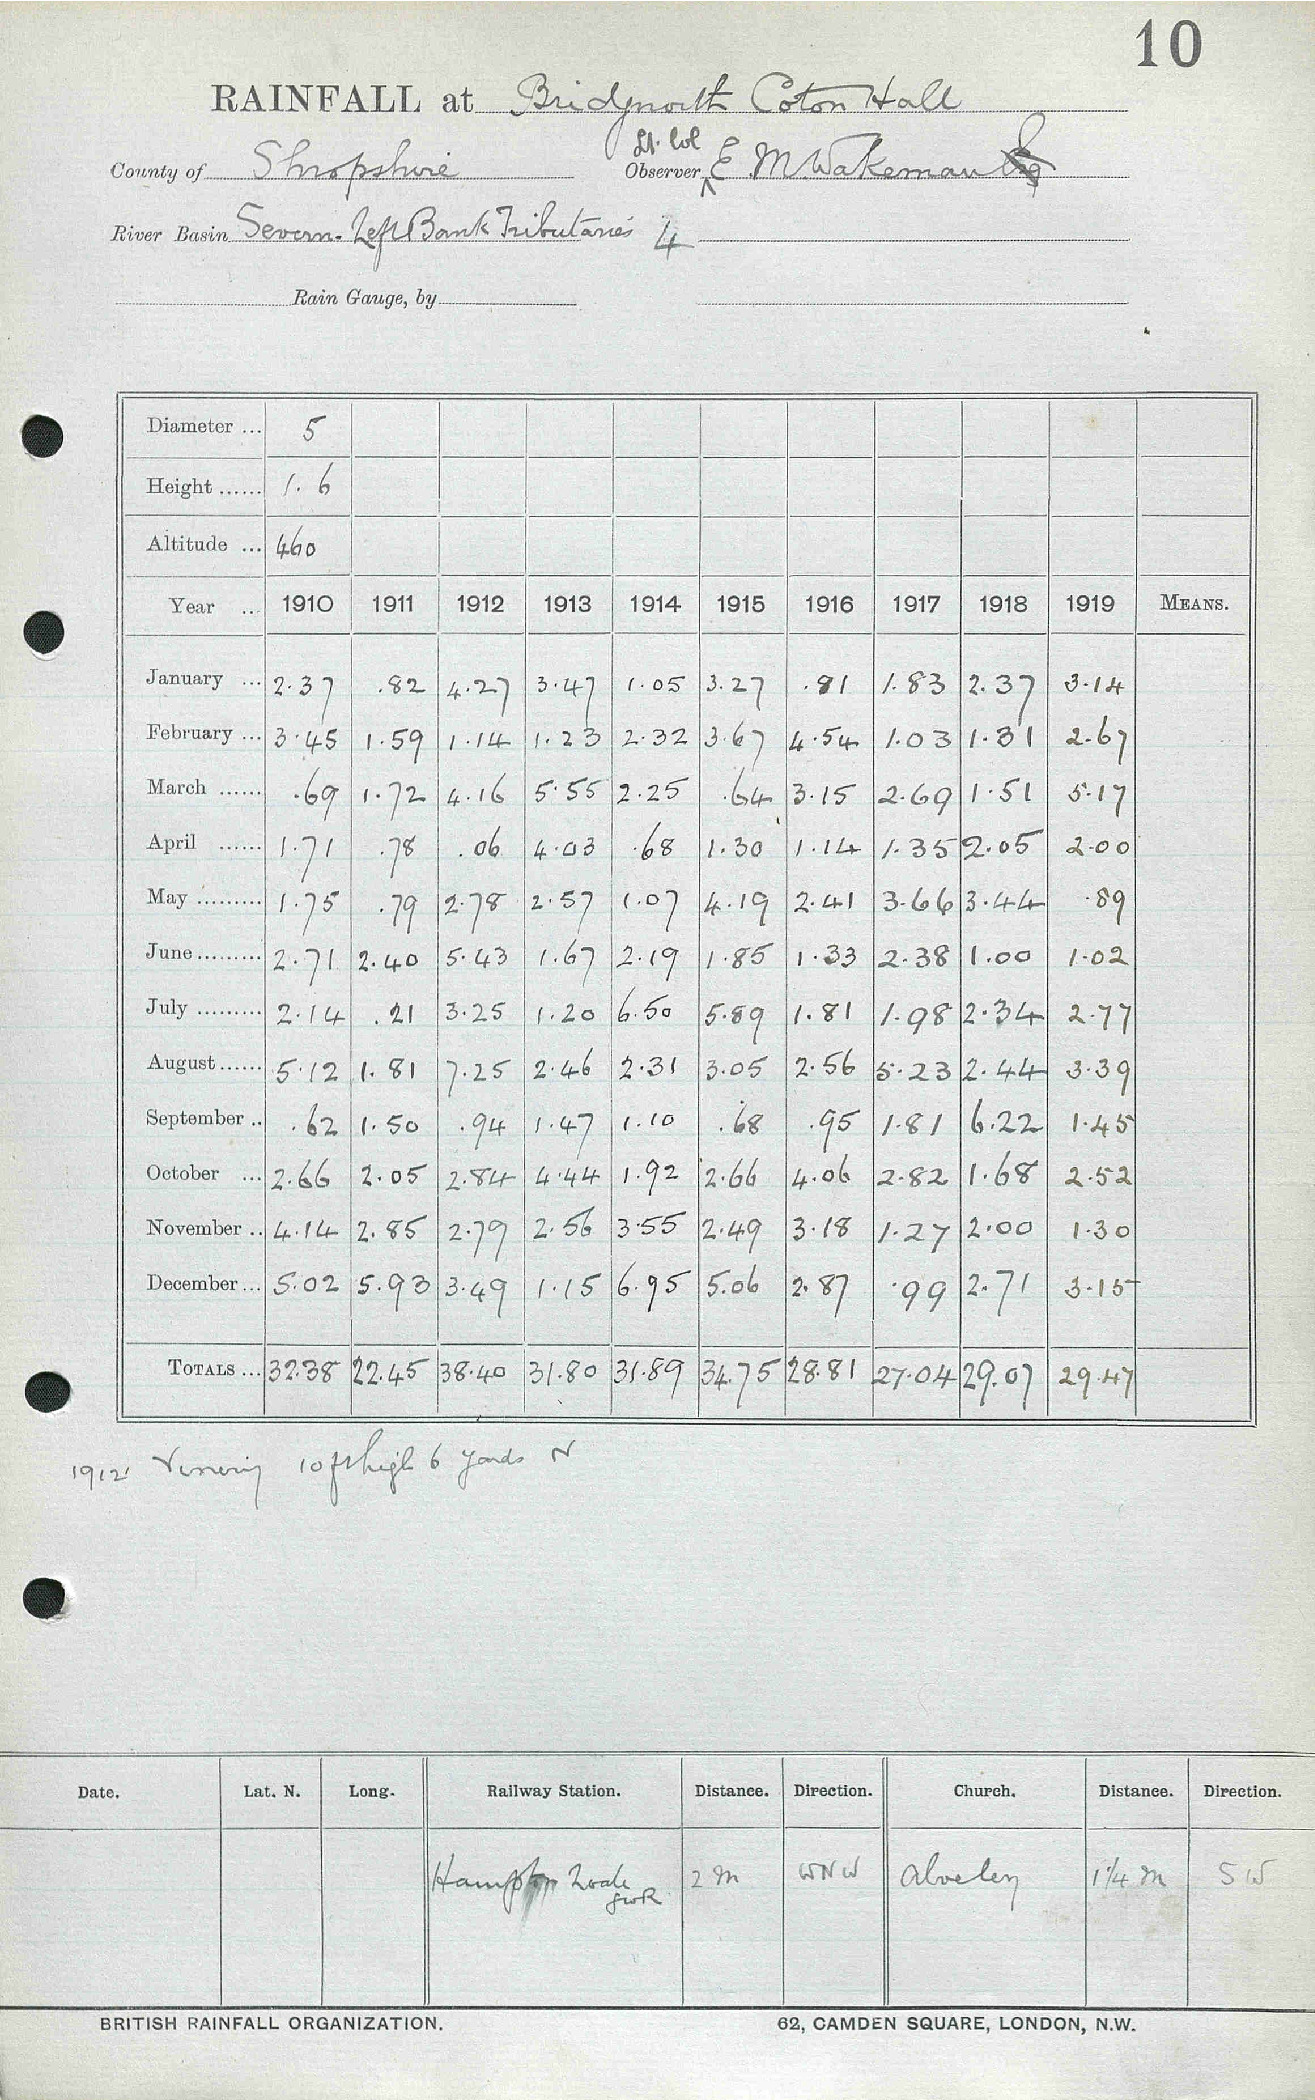 10
RAINFALL at Bridgnorth Coton Hall
Lt. Col
County of Shropshire Observer E M Wakeman
River Basin Severn. Left Bank Tributaries 4
Rain Gauge, by
Diameter ... 5
Height ...... 1.6
Altitude ... 460
Year ... 1910 1911 1912 1913 1914 1915 1916 1917 1918 1919 MEANS.
January ... 2.37 .82 4.27 3.47 1.05 3.27 .81 1.83 2.37 3.14
February ... 3.45 1.59 1.14 1.23 2.32 3.67 4.54 1.03 1.31 2.67
March ...... .69 1.72 4.16 5.55 2.25 .64 3.15 2.69 1.51 5.17
April ...... 1.71 .78 .06 4.03 .68 1.30 1.14 1.35 2.05 2.00
May ......... 1.75 .79 2.78 2.57 1.07 4.19 2.41 3.66 3.44 .89
June ......... 2.71 2.40 5.43 1.67 2.19 1.85 1.33 2.38 1.00 1.02
July ......... 2.14 .21 3.25 1.20 6.50 5.89 1.81 1.98 2.34 2.77
August ...... 5.12 1.81 7.25 2.46 2.31 3.05 2.56 5.23 2.44 3.39
September .. .62 1.50 .94 1.47 1.10 .68 .95 1.81 6.22 1.45
October ... 2.66 2.05 2.84 4.44 1.92 2.66 4.06 2.82 1.68 2.52
November .. 4.14 2.85 2.79 2.56 3.55 2.49 3.18 1.27 2.00 1.30
December ... 5.02 5.93 3.49 1.15 6.95 5.06 2.87 .99 2.71 3.15
TOTALS ... 32.38 22.45 38.40 31.80 31.89 34.75 28.81 27.04 29.07 29.47
1912 Vinery 10 ft high 6 yards N
Date. Lat. N. Long. Railway Station. Distance. Direction. Church. Distance. Direction.
Hampton Loade 2 m WNW Alveley 1 1/4 m SW
GWR
BRITISH RAINFALL ORGANIZATION. 62, CAMDEN SQUARE, LONDON, N.W.